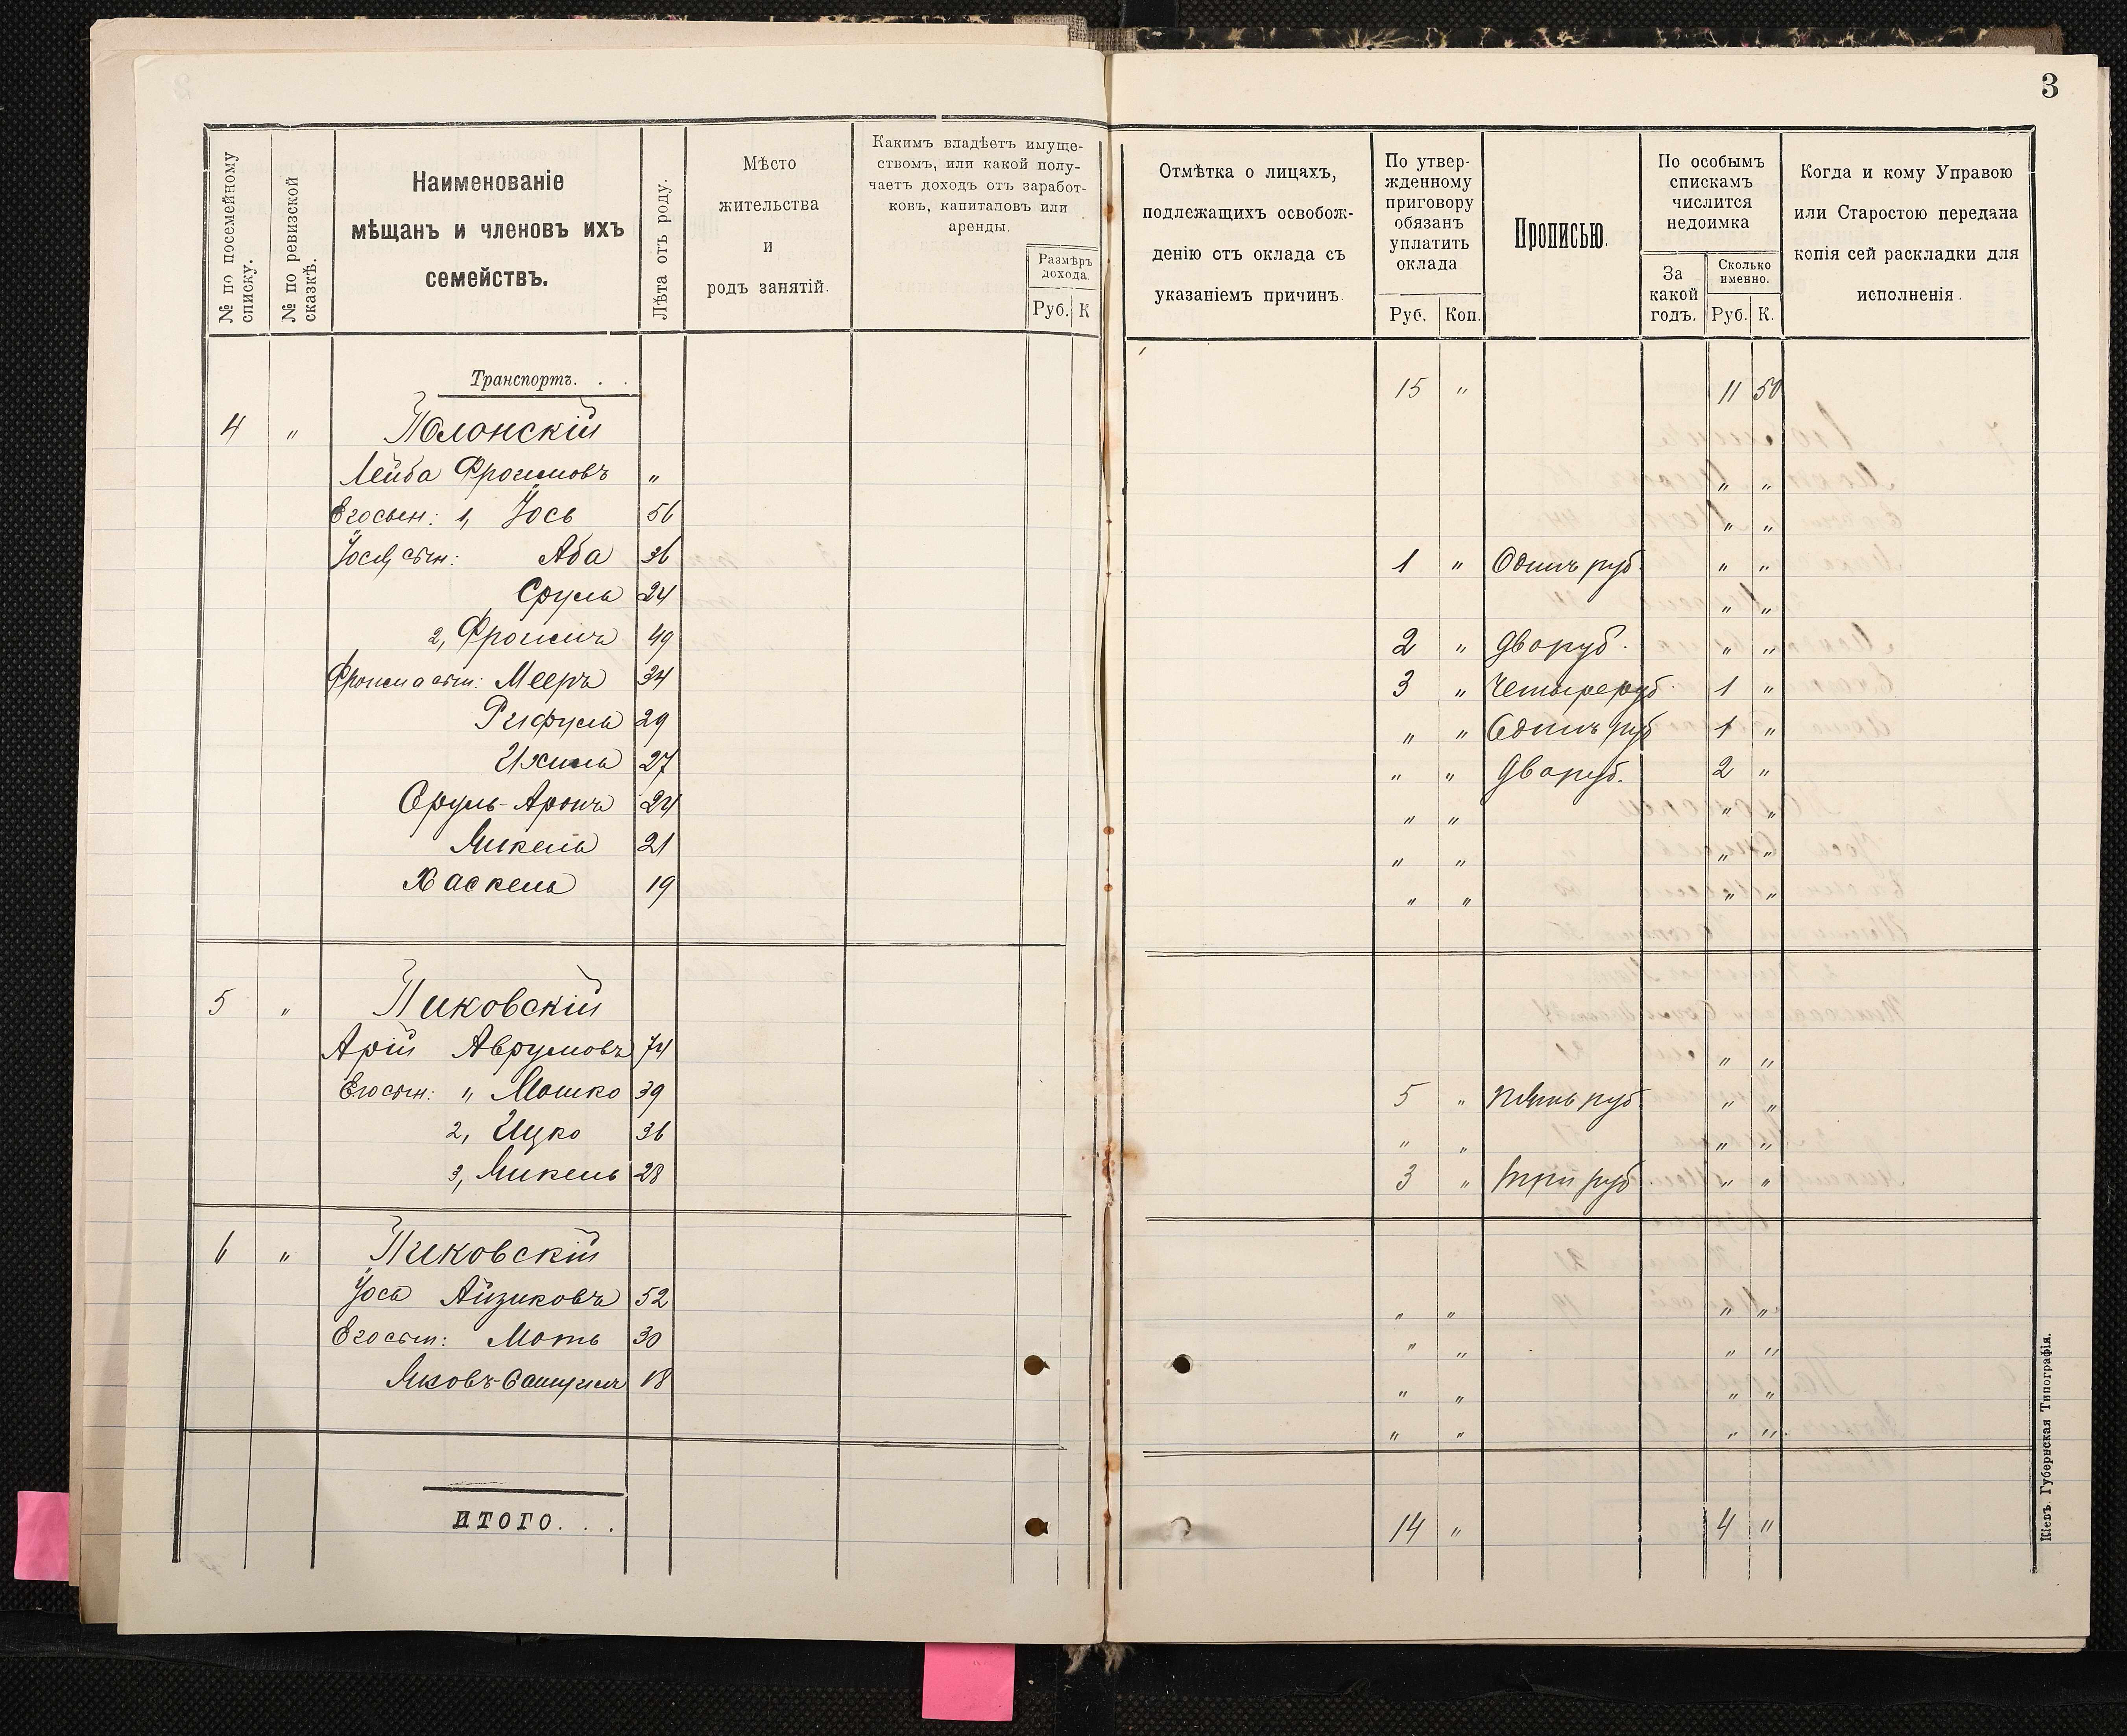 3
№ по посемейному списку.
№ по ревизской сказкѣ.
Наименованіе
мѣщанъ и членовъ ихъ
семействъ.
Лѣта отъ роду.
Мѣсто
жительства
и
родъ занятій.
Какимъ владѣетъ имуще-
ствомъ, или какой полу-
чаетъ доходъ отъ заработ-
ковъ, капиталовъ или
аренды.
Размѣръ
дохода.
Руб. К
Отмѣтка о лицахъ,
подлежащихъ освобож-
денію отъ оклада съ
указаніемъ причинъ.
По утвер-
жденному
приговору
обязанъ
уплатить
оклада
Руб. Коп.
Прописью.
По особымъ
спискамъ
числится
недоимка
За
какой
годъ.
Сколько
именно.
Руб. К.
Когда и кому Управою
или Старостою передана
копія сей раскладки для
исполненія.
Транспортъ. . . 15 " 11 50
4 " Полонскій
Лейба Фроимовъ " " "
Его сын: 1, Іось 56 " "
Іося сын: Аба 36 1 " Одинъ руб. " "
Сруль 24 " "
2, Фроимъ 49 2 " Два руб. " "
Фроима сын: Мееръ 34 3 " Четыре руб. 1 "
Рифуль 29 " " Одинъ руб 1 "
Ихиль 27 " " Два руб. 2 "
Сруль-Аронъ 24 " " " "
Микель 21 " " " "
Хаскель 19 " " " "
5 " Пиковскій
Арій Аврумовъ 74 " "
Его сын: " Мошко 39 5 " Пять руб. " "
2, Ицко 36 " " " "
3, Микель 28 3 " Три руб. " "
6 " Пиковскій
Іось Айзиковъ 52 " " " "
Его сын: Моть 30 " " " "
Яковъ-Самуилъ 18 " " " "
" " " "
ИТОГО. . . 14 " 4 "
Кіевъ. Губернская Типографія.